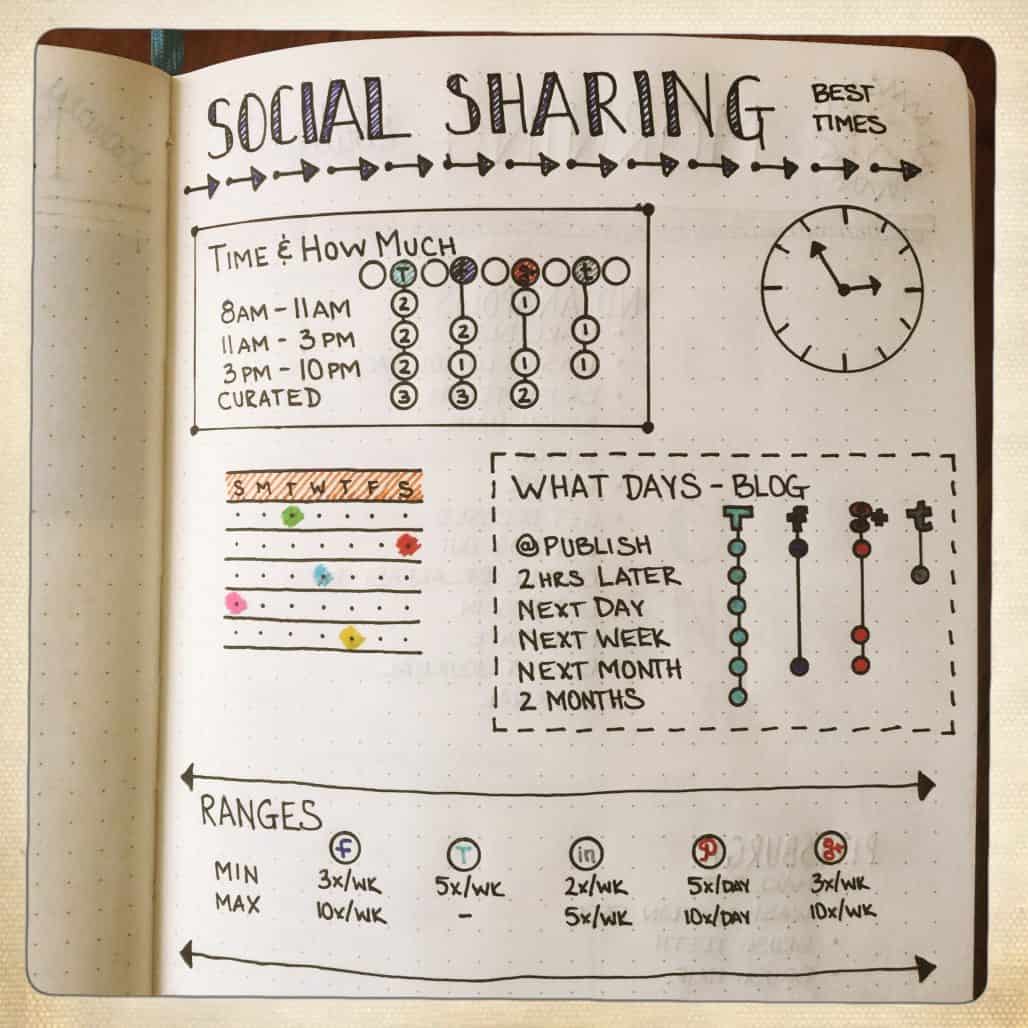 SOCIAL SHARING BEST TIMES
TIME & HOW MUCH
T f g+ t
8AM - 11AM 2 1
11AM - 3PM 2 2 1
3PM - 10PM 2 1 1 1
CURATED 3 3 2
S M T W T F S
WHAT DAYS - BLOG
T f g+ t
@ PUBLISH
2 HRS LATER
NEXT DAY
NEXT WEEK
NEXT MONTH
2 MONTHS
RANGES
f T in P g+
MIN 3x/WK 5x/WK 2x/WK 5x/DAY 3x/WK
MAX 10x/WK - 5x/WK 10x/DAY 10x/WK